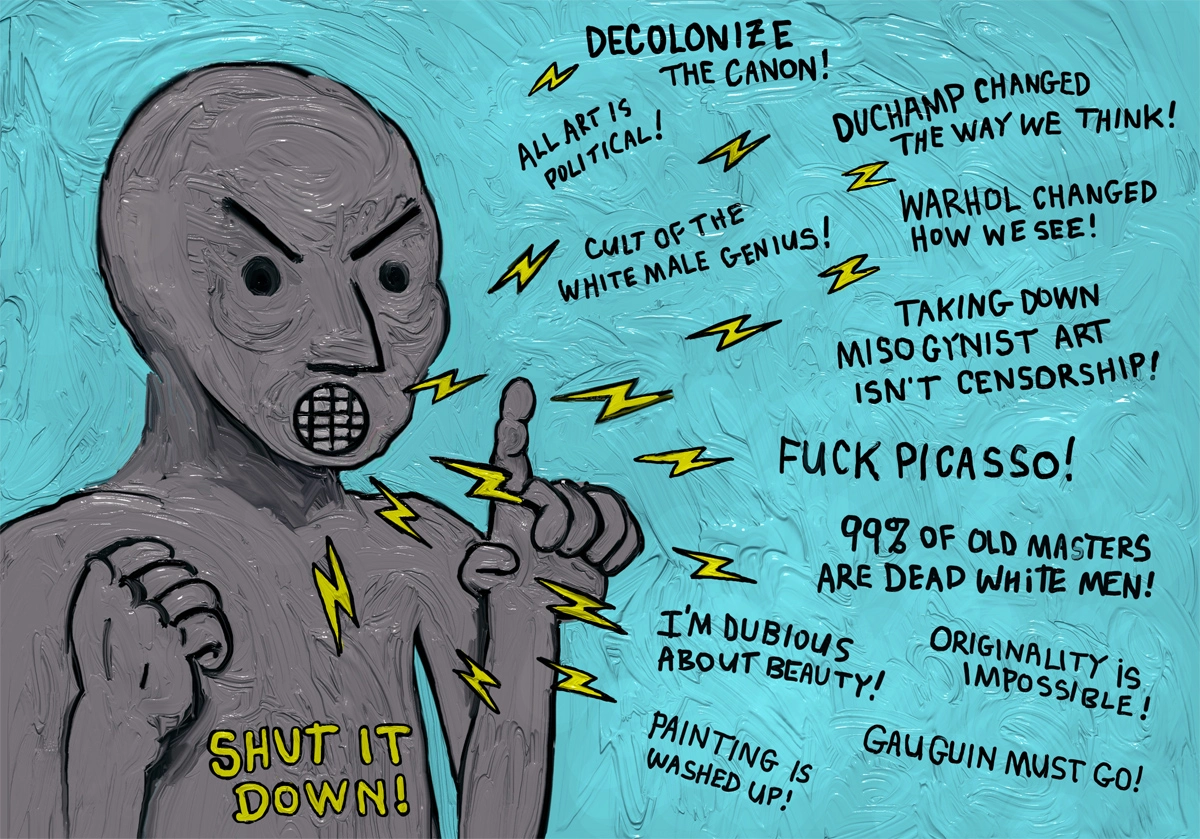 DECOLONIZE
THE CANON!
ALL ART IS
POLITICAL!
DUCHAMP CHANGED
THE WAY WE THINK!
WARHOL CHANGED
HOW WE SEE!
CULT OF THE
WHITE MALE GENIUS!
TAKING DOWN
MISOGYNIST ART
ISN'T CENSORSHIP!
FUCK PICASSO!
99% OF OLD MASTERS
ARE DEAD WHITE MEN!
I'M DUBIOUS
ABOUT BEAUTY!
ORIGINALITY IS
IMPOSSIBLE!
PAINTING IS
WASHED UP!
GAUGUIN MUST GO!
SHUT IT
DOWN!